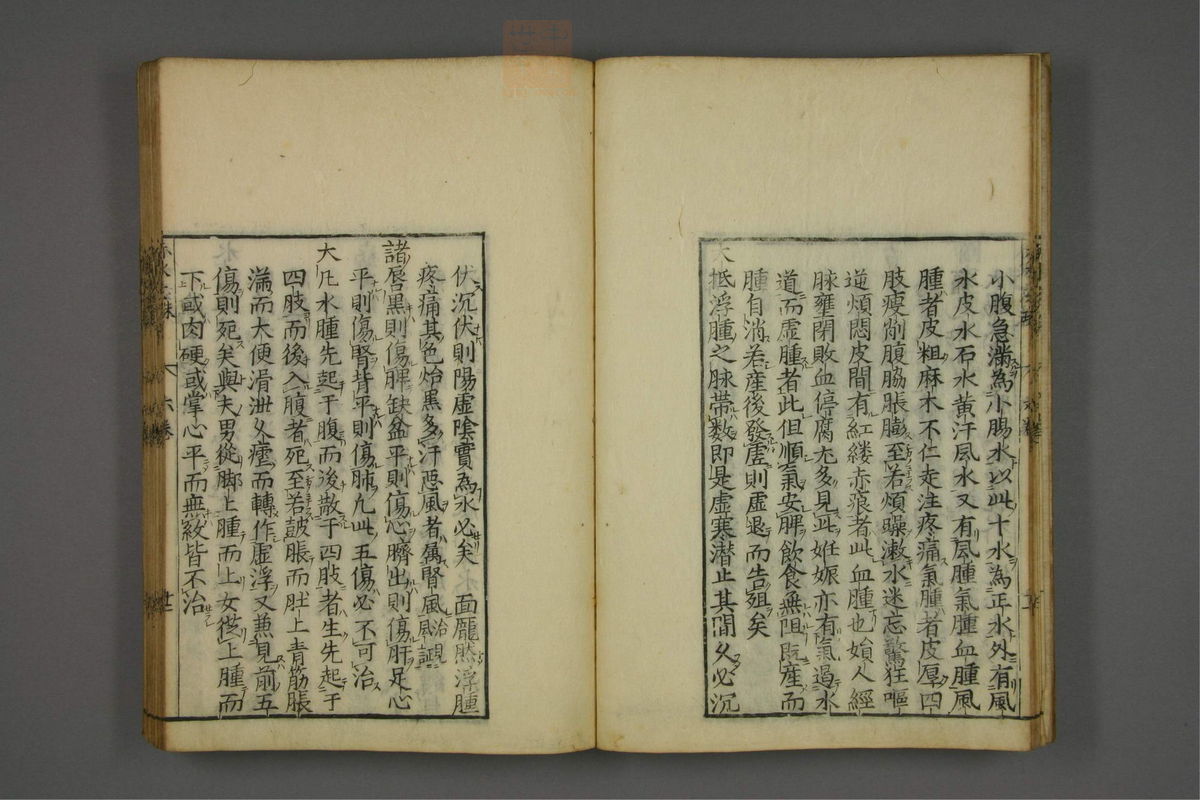 小腹急滿為小腸水以此十水為正水外有風
水皮水石水黃汗風水又有風腫氣腫血腫風
腫者皮粗麻木不仁走注疼痛氣腫者皮厚四
肢瘦削腹脇脹膨至若煩躁漱水迷忘驚狂嘔
逆煩悶皮間有紅縷赤痕者此血腫也婦人經
脉壅閉敗血停腐尤多見此妊娠亦有氣過水
道而虛腫者此但順氣安脾飲食無阻既產而
腫自消若産後發虛則虛退而告殂矣
大抵浮腫之脉帶數即是虛寒潜止其間久必沉
伏沉伏則陽虛陰實為水必矣 面龐然浮腫
疼痛其色炲黑多汗惡風者属腎風治風調
諸唇黑則傷脾缺盆平則傷心臍出則傷肝足心
平則傷腎背平則傷肺凡此五傷必不可治
大凡水腫先起于腹而後散于四肢者生先起于
四肢而後入腹者死至若皷脹而肚上青筋脹
滿而大便滑泄久瘧而轉作虛浮又兼見前五
傷則死矣與夫男從脚上腫而上女從上腫而
下或肉硬或掌心平而無紋皆不治
六卷